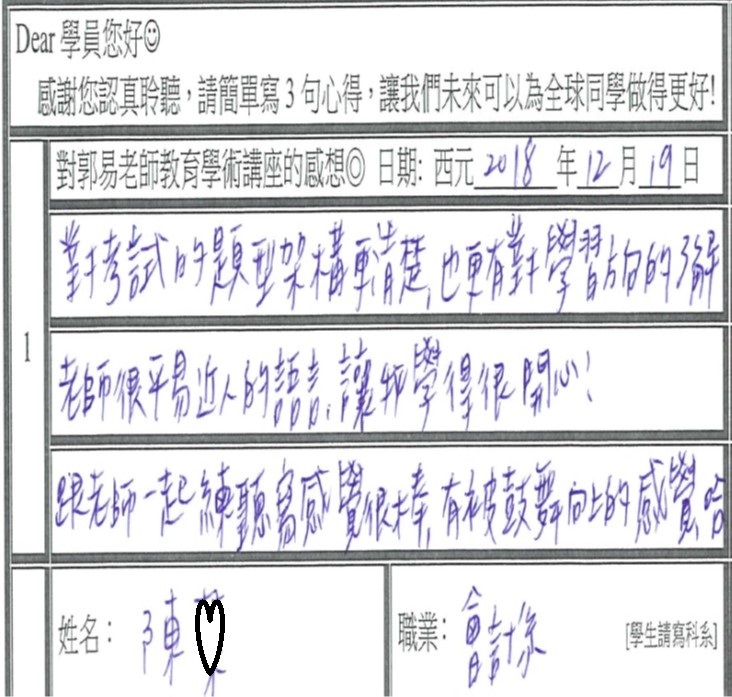 Dear 學員您好☺
感謝您認真聆聽，請簡單寫3句心得，讓我們未來可以為全球同學做得更好!
對郭易老師教育學術講座的感想◎ 日期: 西元 2018 年 12 月 19 日
1
對考試的題型架構更清楚,也更有對學習方向的了解
老師很平易近人的語言,讓我學得很開心!
跟老師一起練聽寫感覺很棒,有被鼓舞向上的感覺,哈
姓名： 陳
職業： 會計系 [學生請寫科系]